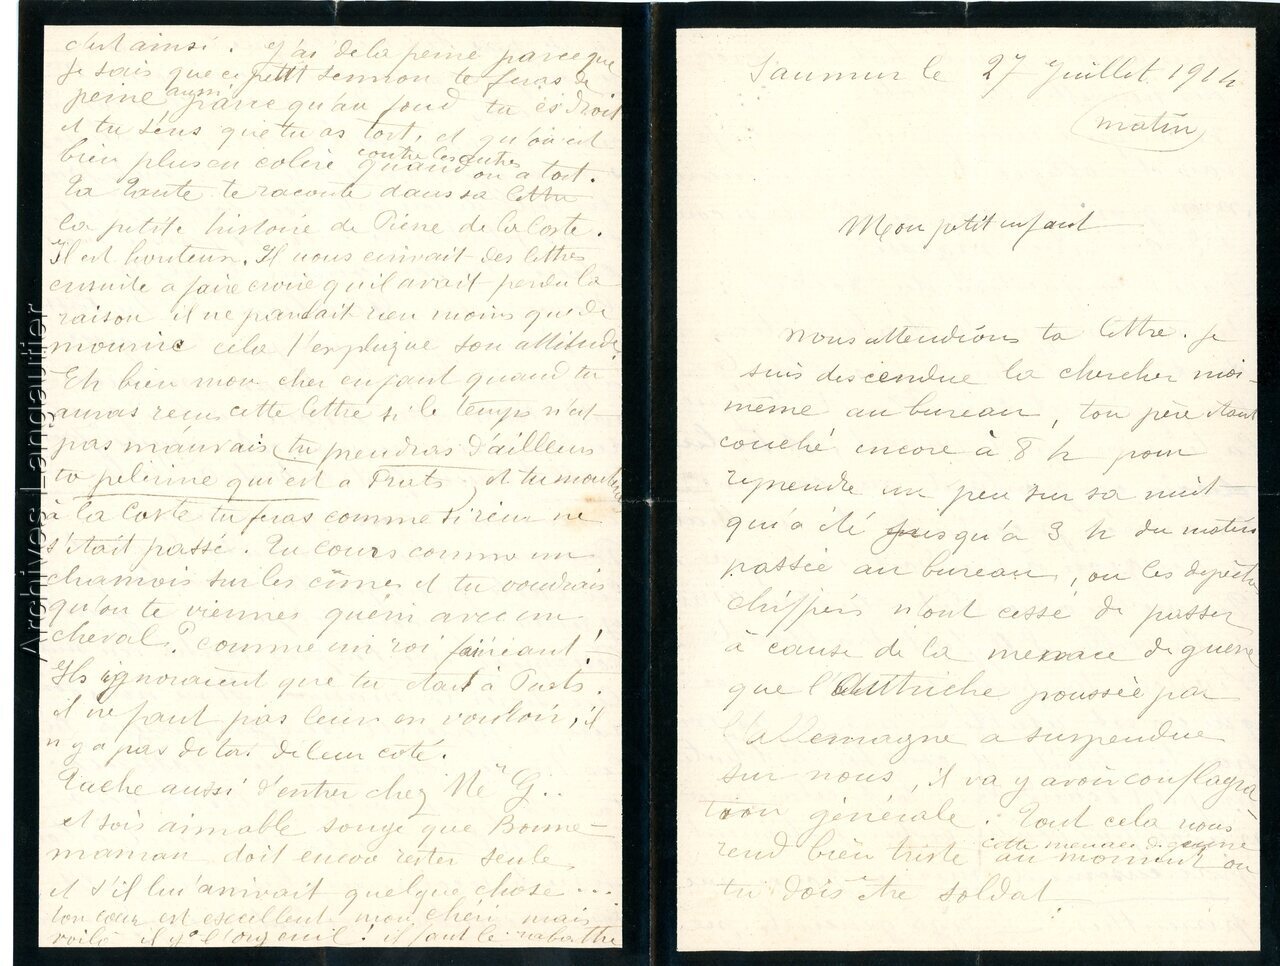 Saumur le 27 Juillet 1914
matin
Mon petit enfant
Nous attendions ta lettre. Je
suis descendue la chercher moi-
même au bureau, ton père étant
couché encore à 8 h pour
reprendre un peu sur sa nuit
qui a été jusqu'à 3 h du matin
passée au bureau, ou les dépêches
chiffrées n'ont cessé de passer
à cause de la menace de guerre
que l'Autriche poussée par
l'Allemagne a suspendue
sur nous, il va y avoir conflagra
tion générale. Tout cela nous
rend bien triste cette menace de guerre au moment ou
tu dois être soldat.
c'est ainsi. J'ai de la peine parce que
je sais que ce petit sermon te feras de
peine aussi parce qu'au fond tu es droit
et tu sens que tu as tort, et qu'on est
bien plus en colère contre les autres quand on a tort.
Ta Tante te raconte dans sa lettre
la petite histoire de Pierre de la Coste.
Il est honteux. Il nous écrivait des lettres
ensuite a faire croire qu'il avait perdu la
raison il ne parlait rien moins que de
mourir cela t'explique son attitude
Eh bien mon cher enfant quand tu
auras reçu cette lettre si le temps n'est
pas mauvais (tu prendras d'ailleurs
ta pelerine qui est a Prats) et tu monteras
à la Coste tu feras comme si rien ne
s'était passé. Tu cours comme un
chamois sur les cîmes et tu voudrais
qu'on te viennes quérir avec un
cheval? comme un roi fainéant!
Ils ignoraient que tu étais à Prats.
il ne faut pas leur en vouloir, il
n'y a pas de de leur coté.
Tache aussi d'entrer chez Me G..
et sois aimable songe que Bonne-
maman doit encore rester seule
et s'il lui arrivait quelque chose...
ton cœur est excellent mon chéri mais
voilà il y a l'orgueil! il faut le rabattre
Archives Langautier